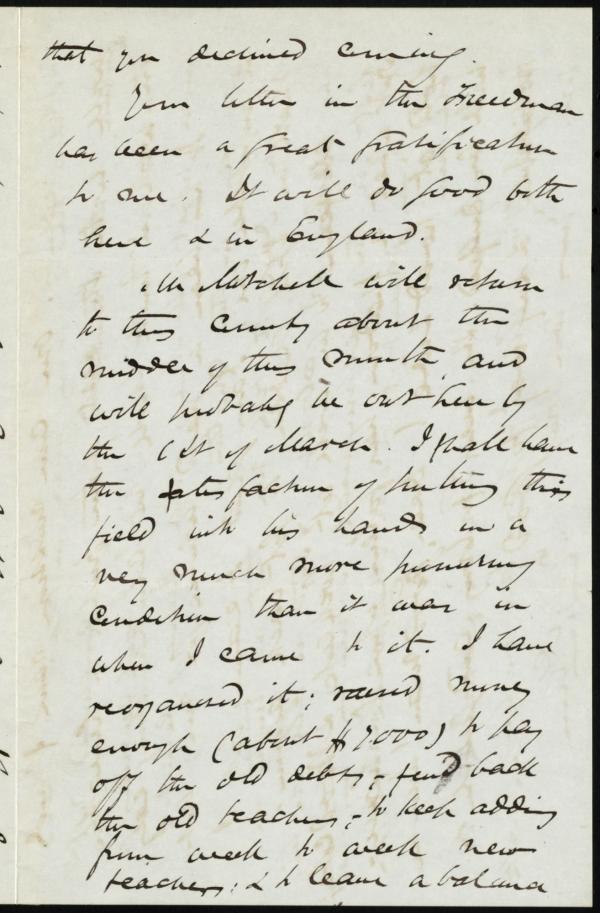 that you declined coming.
Your letter in the Freedman
has been a great gratification
to me. It will do good both
here & in England.
Mr Mitchell will return
to this country about the
middle of this month, and
will probably be out here by
the 1st of March. I shall have
the satisfaction of putting this
field into his hands in a
very much more promising
condition than it was in
when I came to it. I have
reorganised it; raised money
enough (about $7000) to pay
off the old debts, - send back
the old teachers, - to keep adding
from week to week new
teachers; & to leave a balance